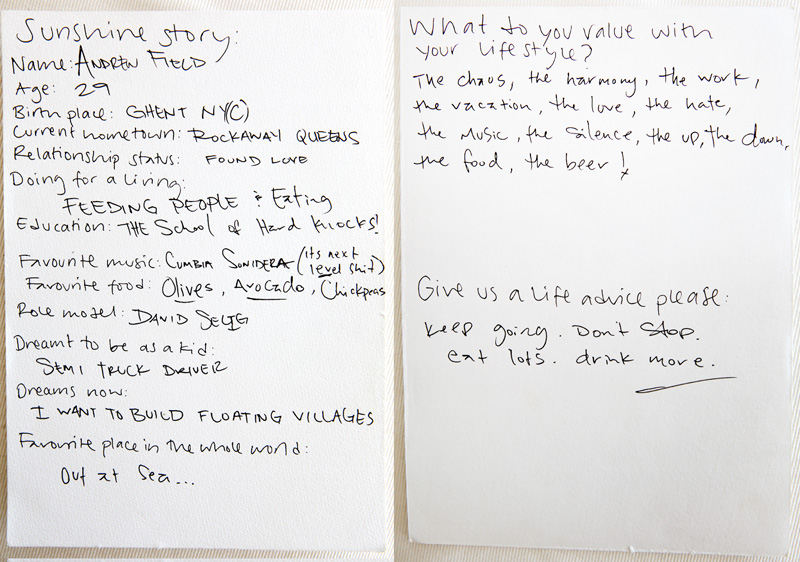 Sunshine story:
Name: ANDREW FIELD
Age: 29
Birth place: GHENT NY(C)
Current hometown: ROCKAWAY QUEENS
Relationship status: FOUND LOVE
Doing for a living:
FEEDING PEOPLE & Eating
Education: THE School of Hard Knocks!
Favourite music: CUMBIA SONIDERA (its next
level shit)
Favourite food: Olives, Avocado, Chickpeas
Role model: DAVID SELIG
Dreamt to be as a kid:
SEMI TRUCK DRIVER
Dreams now:
I WANT TO BUILD FLOATING VILLAGES
Favourite place in the whole world:
Out at Sea...
What to you value with
your lifestyle?
The chaos, the harmony, the work,
the vacation, the love, the hate,
the Music, the silence, the up, the down,
the food, the beer!
Give us a life advice please:
keep going. Don't Stop.
eat lots. drink more.